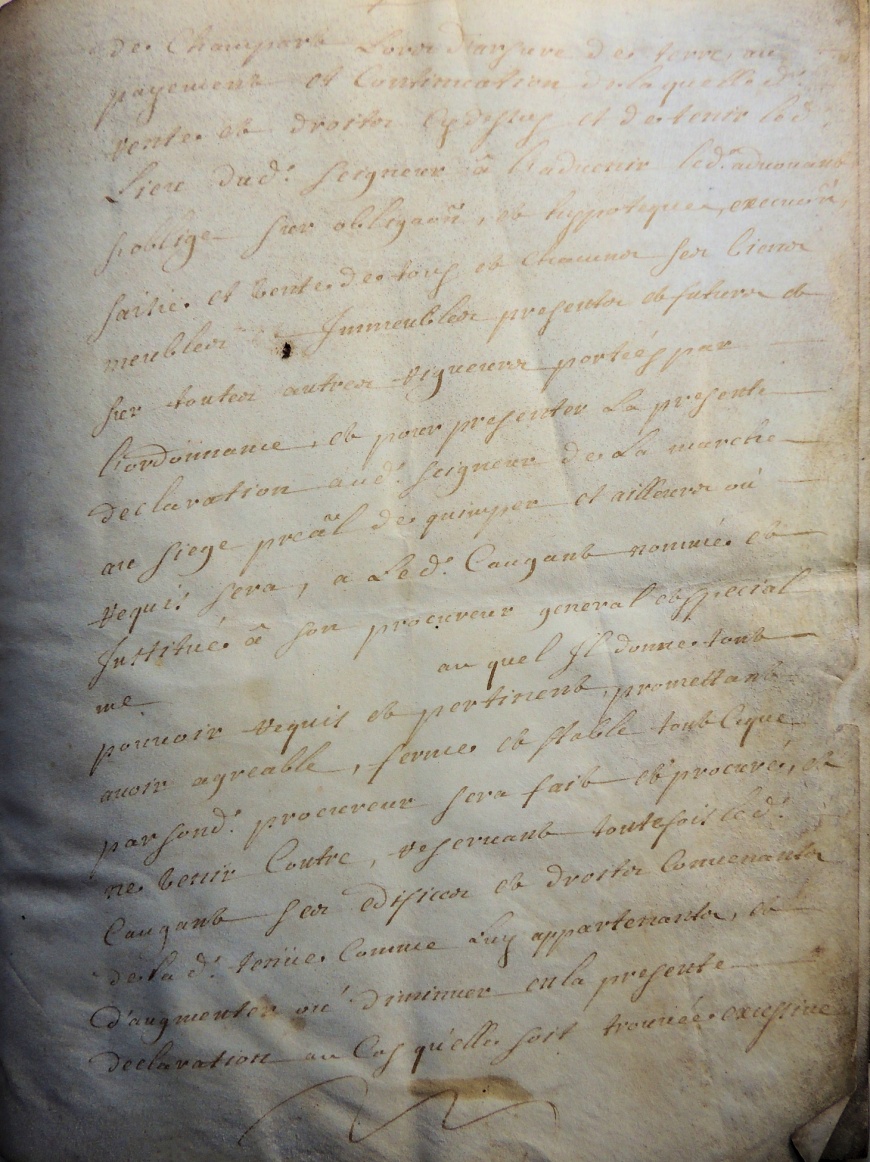 de Champart Lors d'arsure de terre, au
payement et Continuation de laquelle d.
rente et droitz Cy dessus et de tenir led.
Lieu dud. Seigneur à l'aduenir led. aduouant
s'oblige sur obligaõn, et hypoteque, execuõn,
saisie et vente de tous et Chacuns ses biens
meubles Immeubles presents et futurs et
sur toutes autres rigueurs portées par
l'ordonnance, et pour presenter La presente
declaration aud. seigneur de La marche
au siege preãl de quimper et ailleurs ou
requis sera, a Led. Caugant nommé et
Institué â son procureur general et special
me auquel Il donne tout
pouuoir requis et pertinent, promettant
auoir agreable, ferme et stable tout Ceque
par sond. procureur sera fait et procuré, et
ne venir Contre, reseruant toutefois led.
Caugant ses edifices et droits Conuenants
de la d. tenüe Comme Luy appartenants, et
d'augmenter ou diminuer en la presente
declaration au Cas qu'elle soit trouuée excessiue